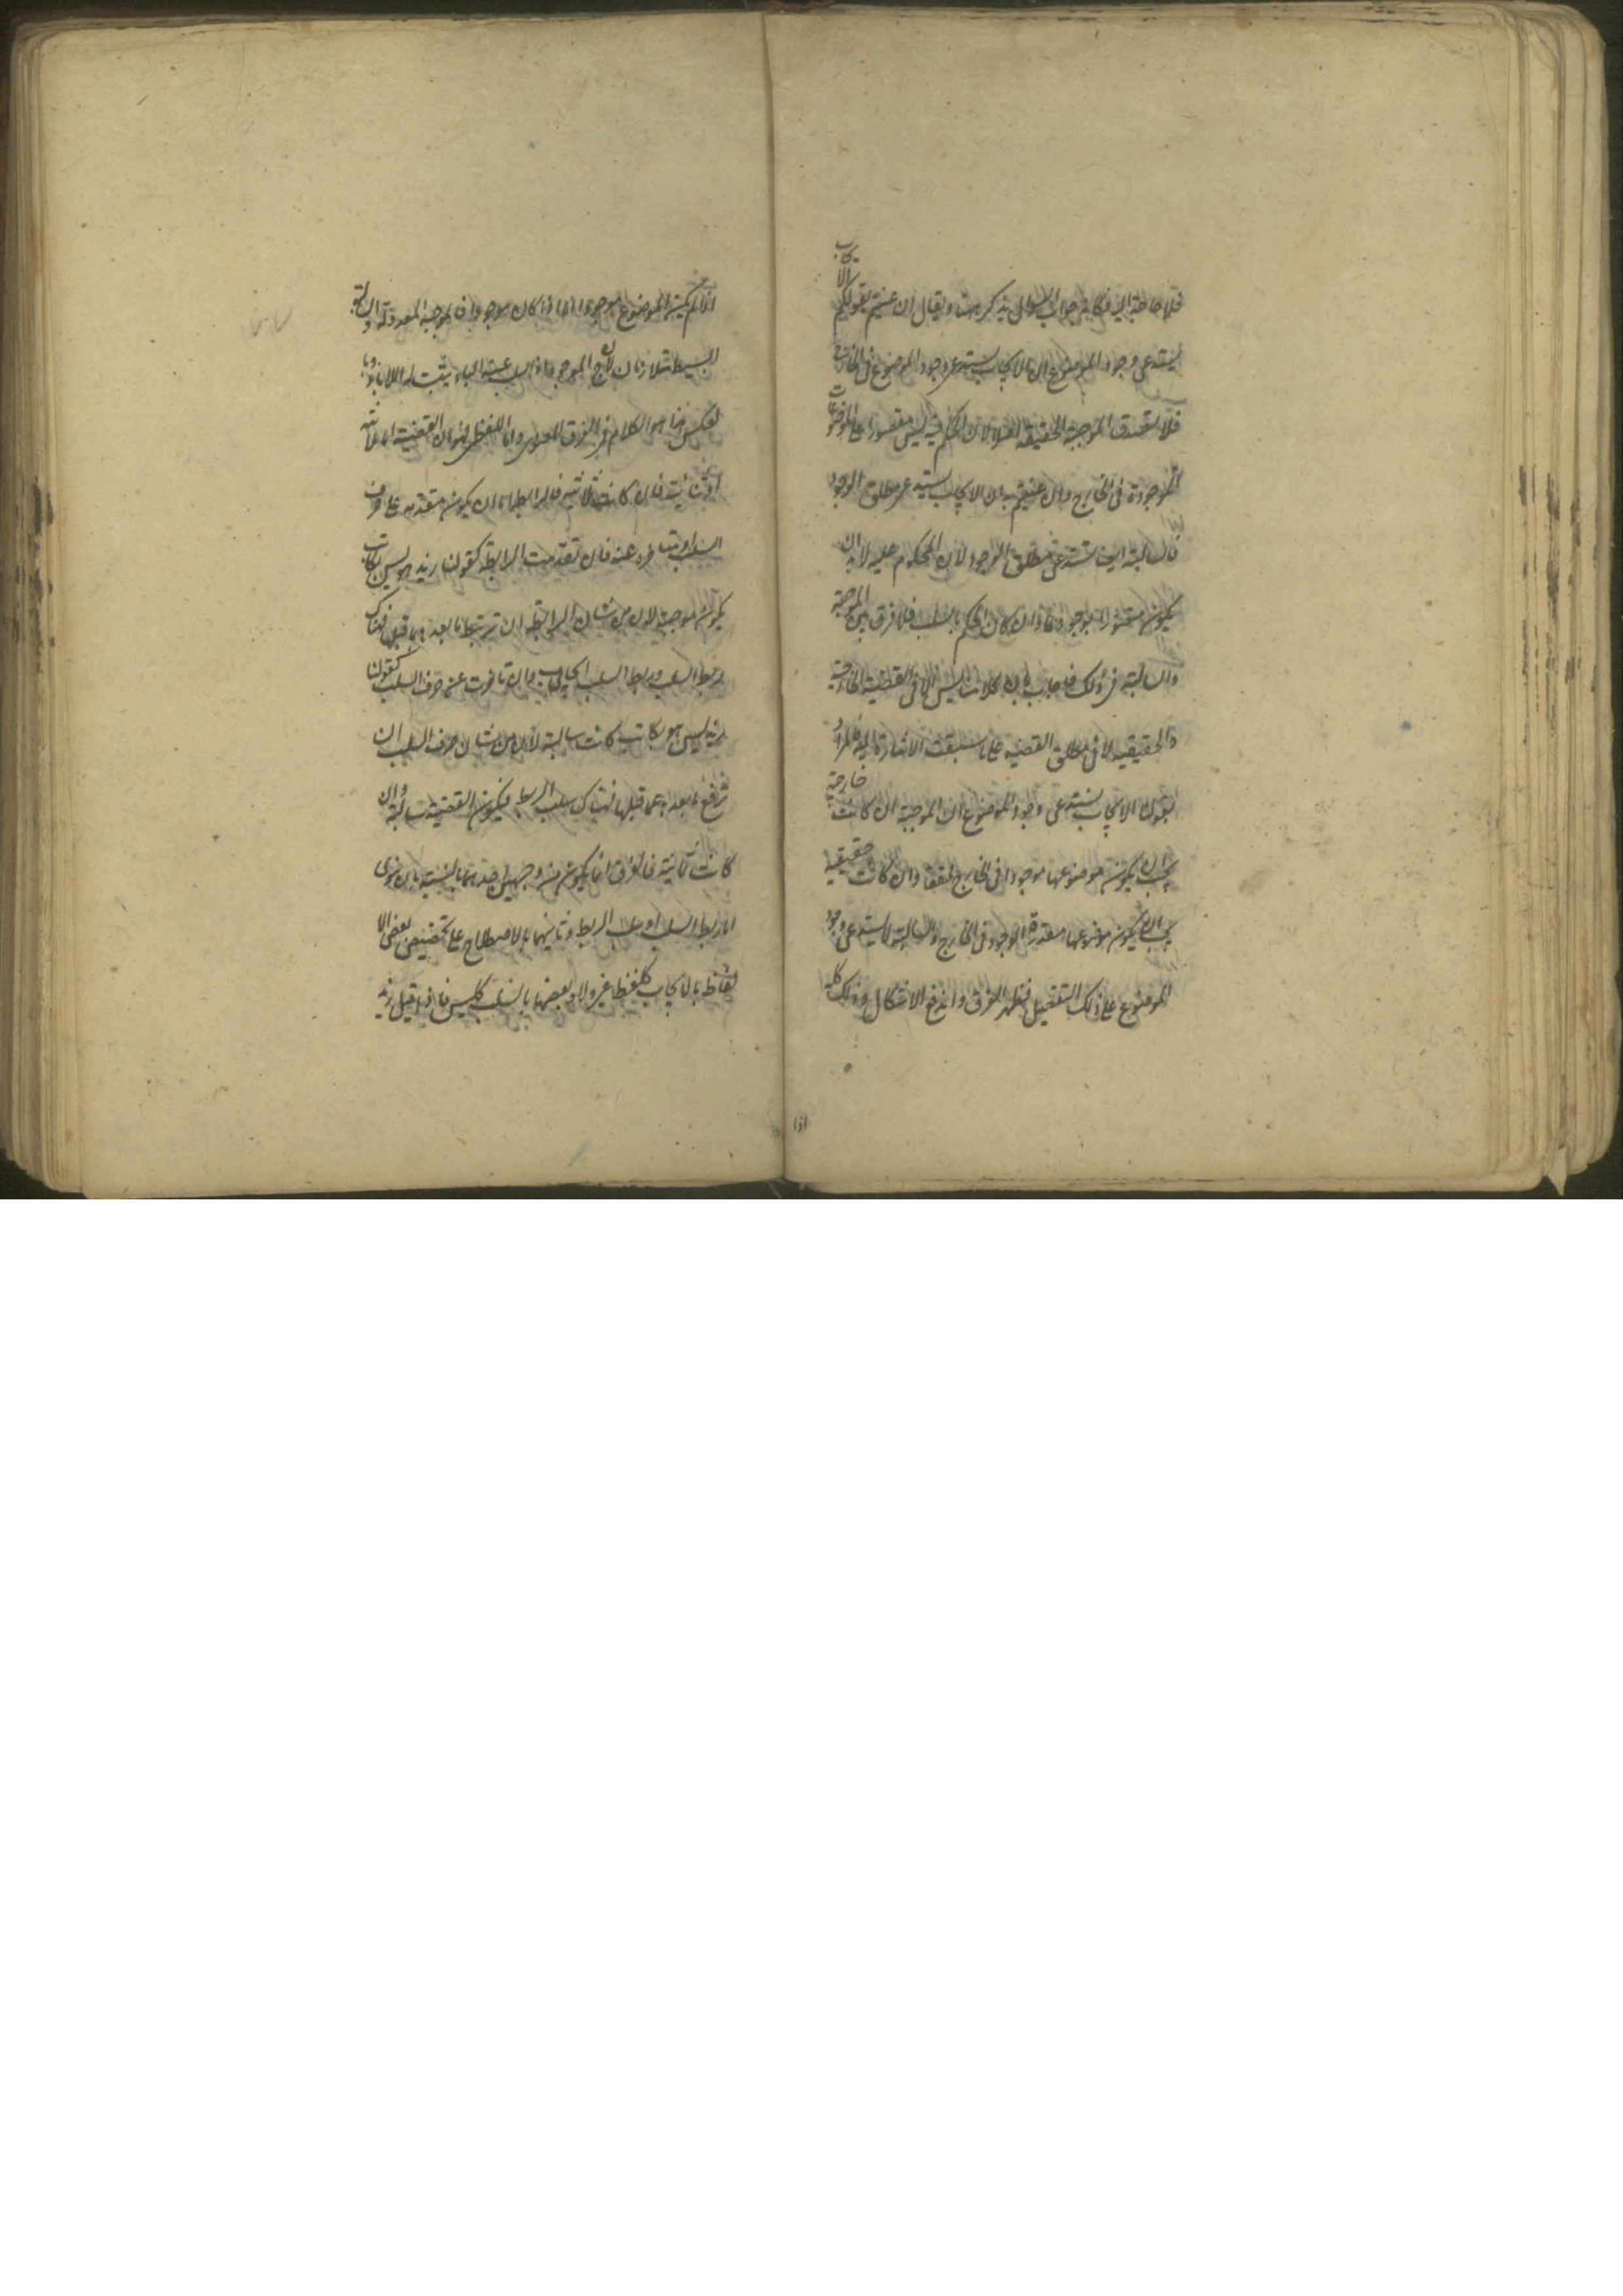 فلا حاجة اليه فكانه جواب سوال يذكر هنا ويقال ان عنيتم بقولكم الايجاب
يستدعي وجود الموضوع ان الايجاب يستدعي وجود الموضوع في الخارج
فلا تصدق الموجبة الحقيقية اصلا لان الحكم فيها ليس مقصورا على الموضوعات
الموجودة في الخارج وان عنيتم به ان الايجاب يستدعي مطلق الوجود
فالسالبة ايضا تستدعي مطلق الوجود لان المحكوم عليه لابد ان
يكون متصورا بوجه ما وان كان الحكم بالسلب فلا فرق بين الموجبة
والسالبة في ذلك فاجاب بان كلامنا ليس الا في القضية الخارجية
والحقيقية لا في مطلق القضية على ما سبقت الاشارة اليه فالمراد
بقوله الايجاب يستدعي وجود الموضوع ان الموجبة ان كانت خارجية
يجب ان يكون موضوعها موجودا في الخارج محققا وان كانت حقيقية
يجب ان يكون موضوعها مقدرة الوجود في الخارج والسالبة لا يستدعي وجود
الموضوع على ذلك التفصيل فظهر الفرق واندفع الاشكال وذلك كله
اذا لم يكن الموضوع موجودا اما اذا كان موجودا فالموجبة المعدولة والسالبة
البسيطة متلازمتان لان ج الموجود اذا سلب عنه الباء يثبت له اللاباء وبا
لعكس هذا هو الكلام في الفرق المعنوي واما اللفظي فهو ان القضية اما ثلاثية
او ثنائية فان كانت ثلاثية فالرابطة اما ان يكون متقدمة على حرف
السلب او متاخرة عنه فان تقدمت الرابطة كقولنا زيد هو ليس بكاتب
يكون موجبة لان من شان الرابطة ان تربط ما بعدها بما قبلها فهناك
ربط السلب وربط السلب ايجاب وان تاخرت عن حرف السلب كقولنا
زيد ليس هو بكاتب كانت سالبة لان من شان حرف السلب ان
ترفع ما بعدها عما قبلها فهناك سلب الربط فيكون القضية سالبة وان
كانت ثنائية فالفرق انما يكون من وجهين احدهما بالنية بان ينوى
اما ربط السلب او سلب الربط وثانيهما بالاصطلاح على تخصيص بعض الا
لفاظ بالايجاب كلفظ غير ولا وبعضها بالسلب كليس فاذا قيل زيد